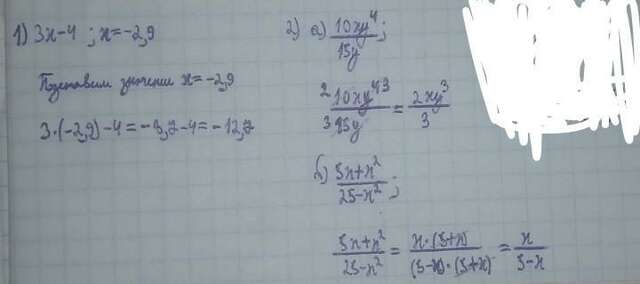 1) 3x-4 ; x=-2,9
Подставим значение x=-2,9
3·(-2,9)-4=-8,7-4=-12,7
2) а) 10xy⁴/15y ;
2 10xy⁴ 3 / 3 15y = 2xy³/3
б) 5x+x²/25-x² ;
5x+x²/25-x² = x·(5+x)/(5-x)·(5+x) = x/5-x